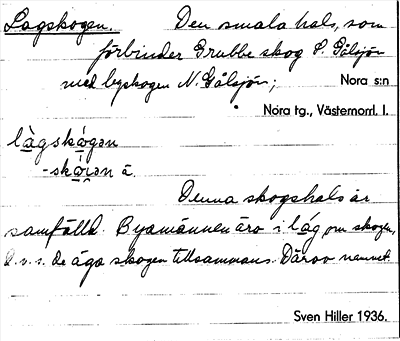 Lagskogen. Den smala hals, som
förbinder Grubbe skog S. Gålsjön
med byskogen N. Gålsjön; Nora s:n
Nora tg., Västernorrl. l.
là̱gskó̱gən
-sko̱i̯ən ā.
Denna skogshals är
samfälld. Byamännen äro i låg om skogen,
d.v.s. de äga skogen tillsammans. Därav namnet.
Sven Hiller 1936.